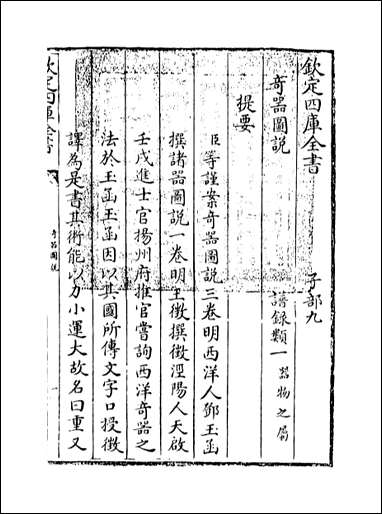 欽定四庫全書
子部九
奇器圖說
譜録類一器物之屬
提要
臣等謹案奇器圖說三卷明西洋人鄧玉函
撰諸器圖說一卷明王徵撰徵涇陽人天啟
壬戌進士官揚州府推官嘗詢西洋奇器之
法於玉函玉函因以其國所傳文字口授徵
譯為是書其術能以力小運大故名曰重又
欽定四庫全書
奇器圖說
一